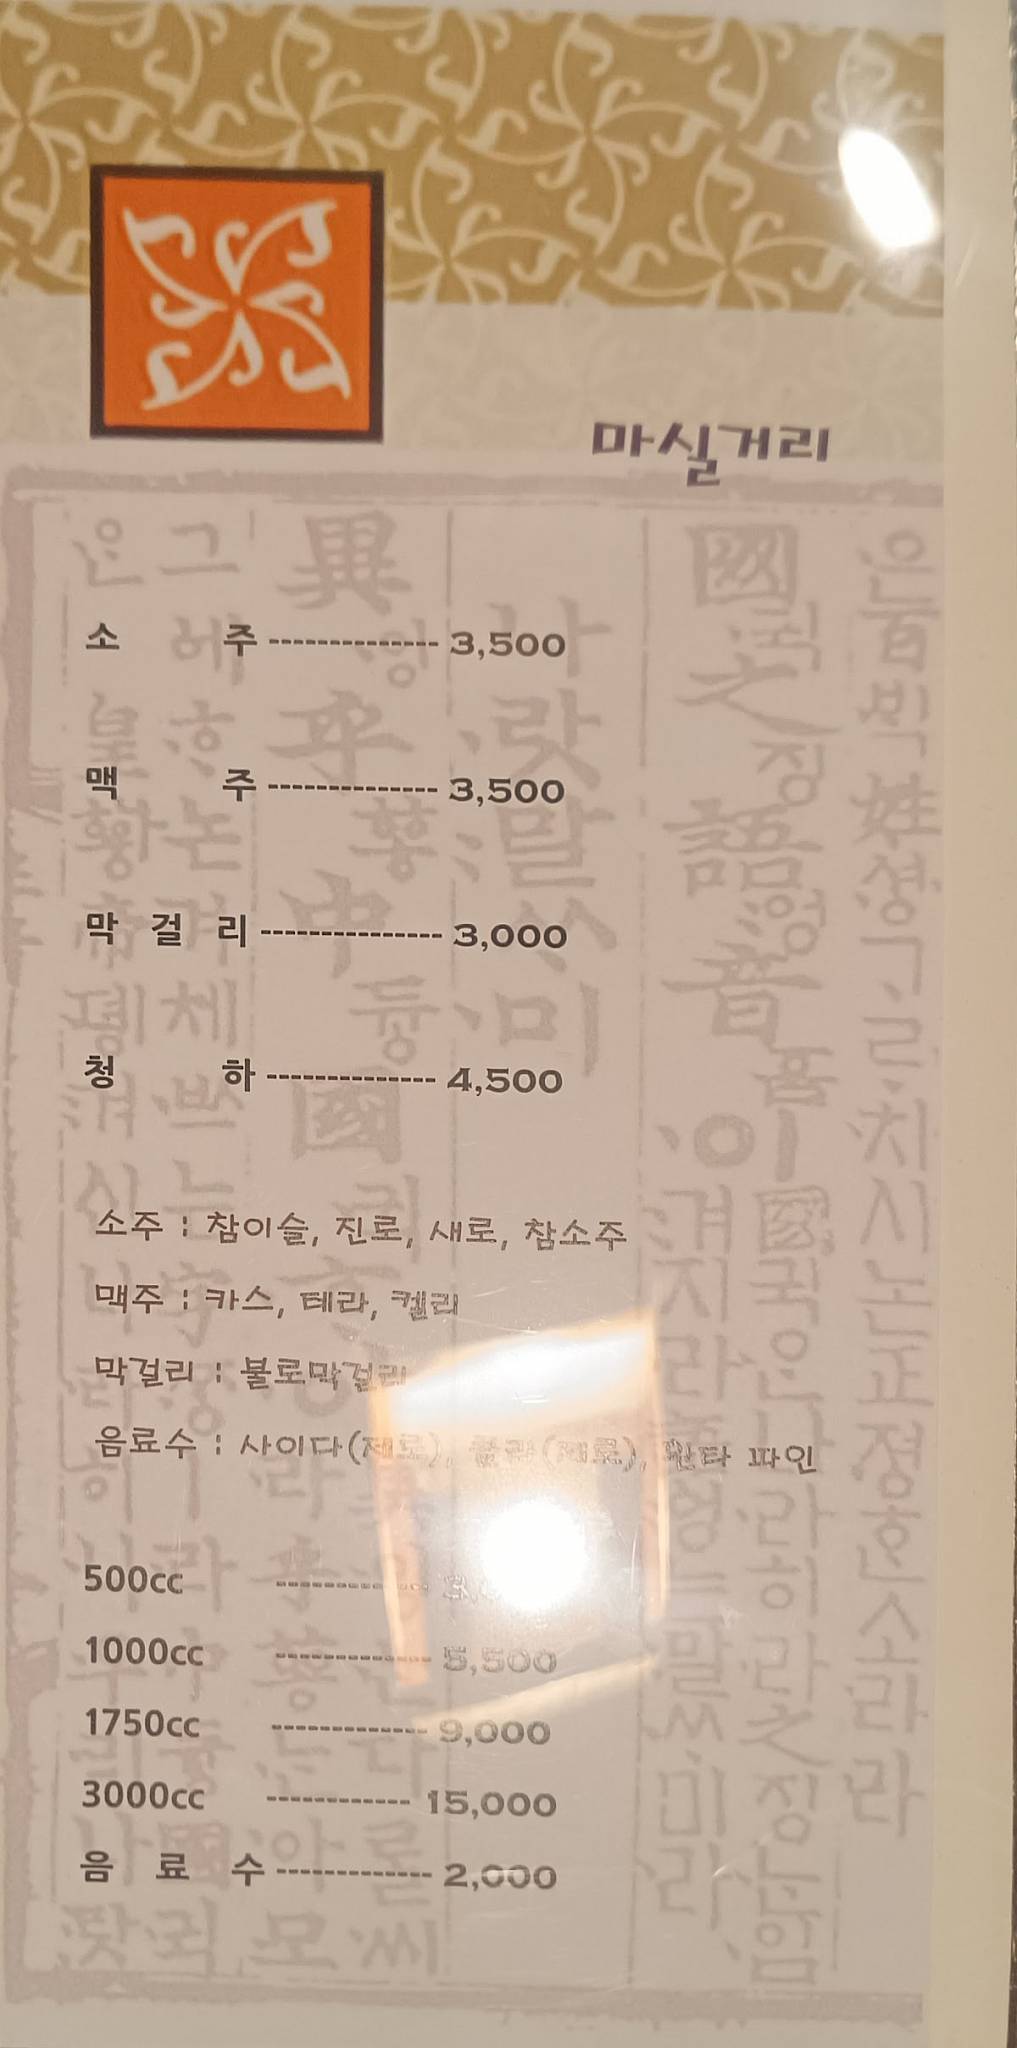 마실거리
소 주 -------------- 3,500
맥 주 -------------- 3,500
막 걸 리 --------------- 3,000
청 하 -------------- 4,500
소주 : 참이슬, 진로, 새로, 참소주
맥주 : 카스, 테라, 켈리
막걸리 : 불로막걸리
음료수 : 사이다(제로), 콜라(제로), 환타 파인
500cc -------------
1000cc ------------- 5,500
1750cc ------------- 9,000
3000cc ------------ 15,000
음 료 수 ------------- 2,000